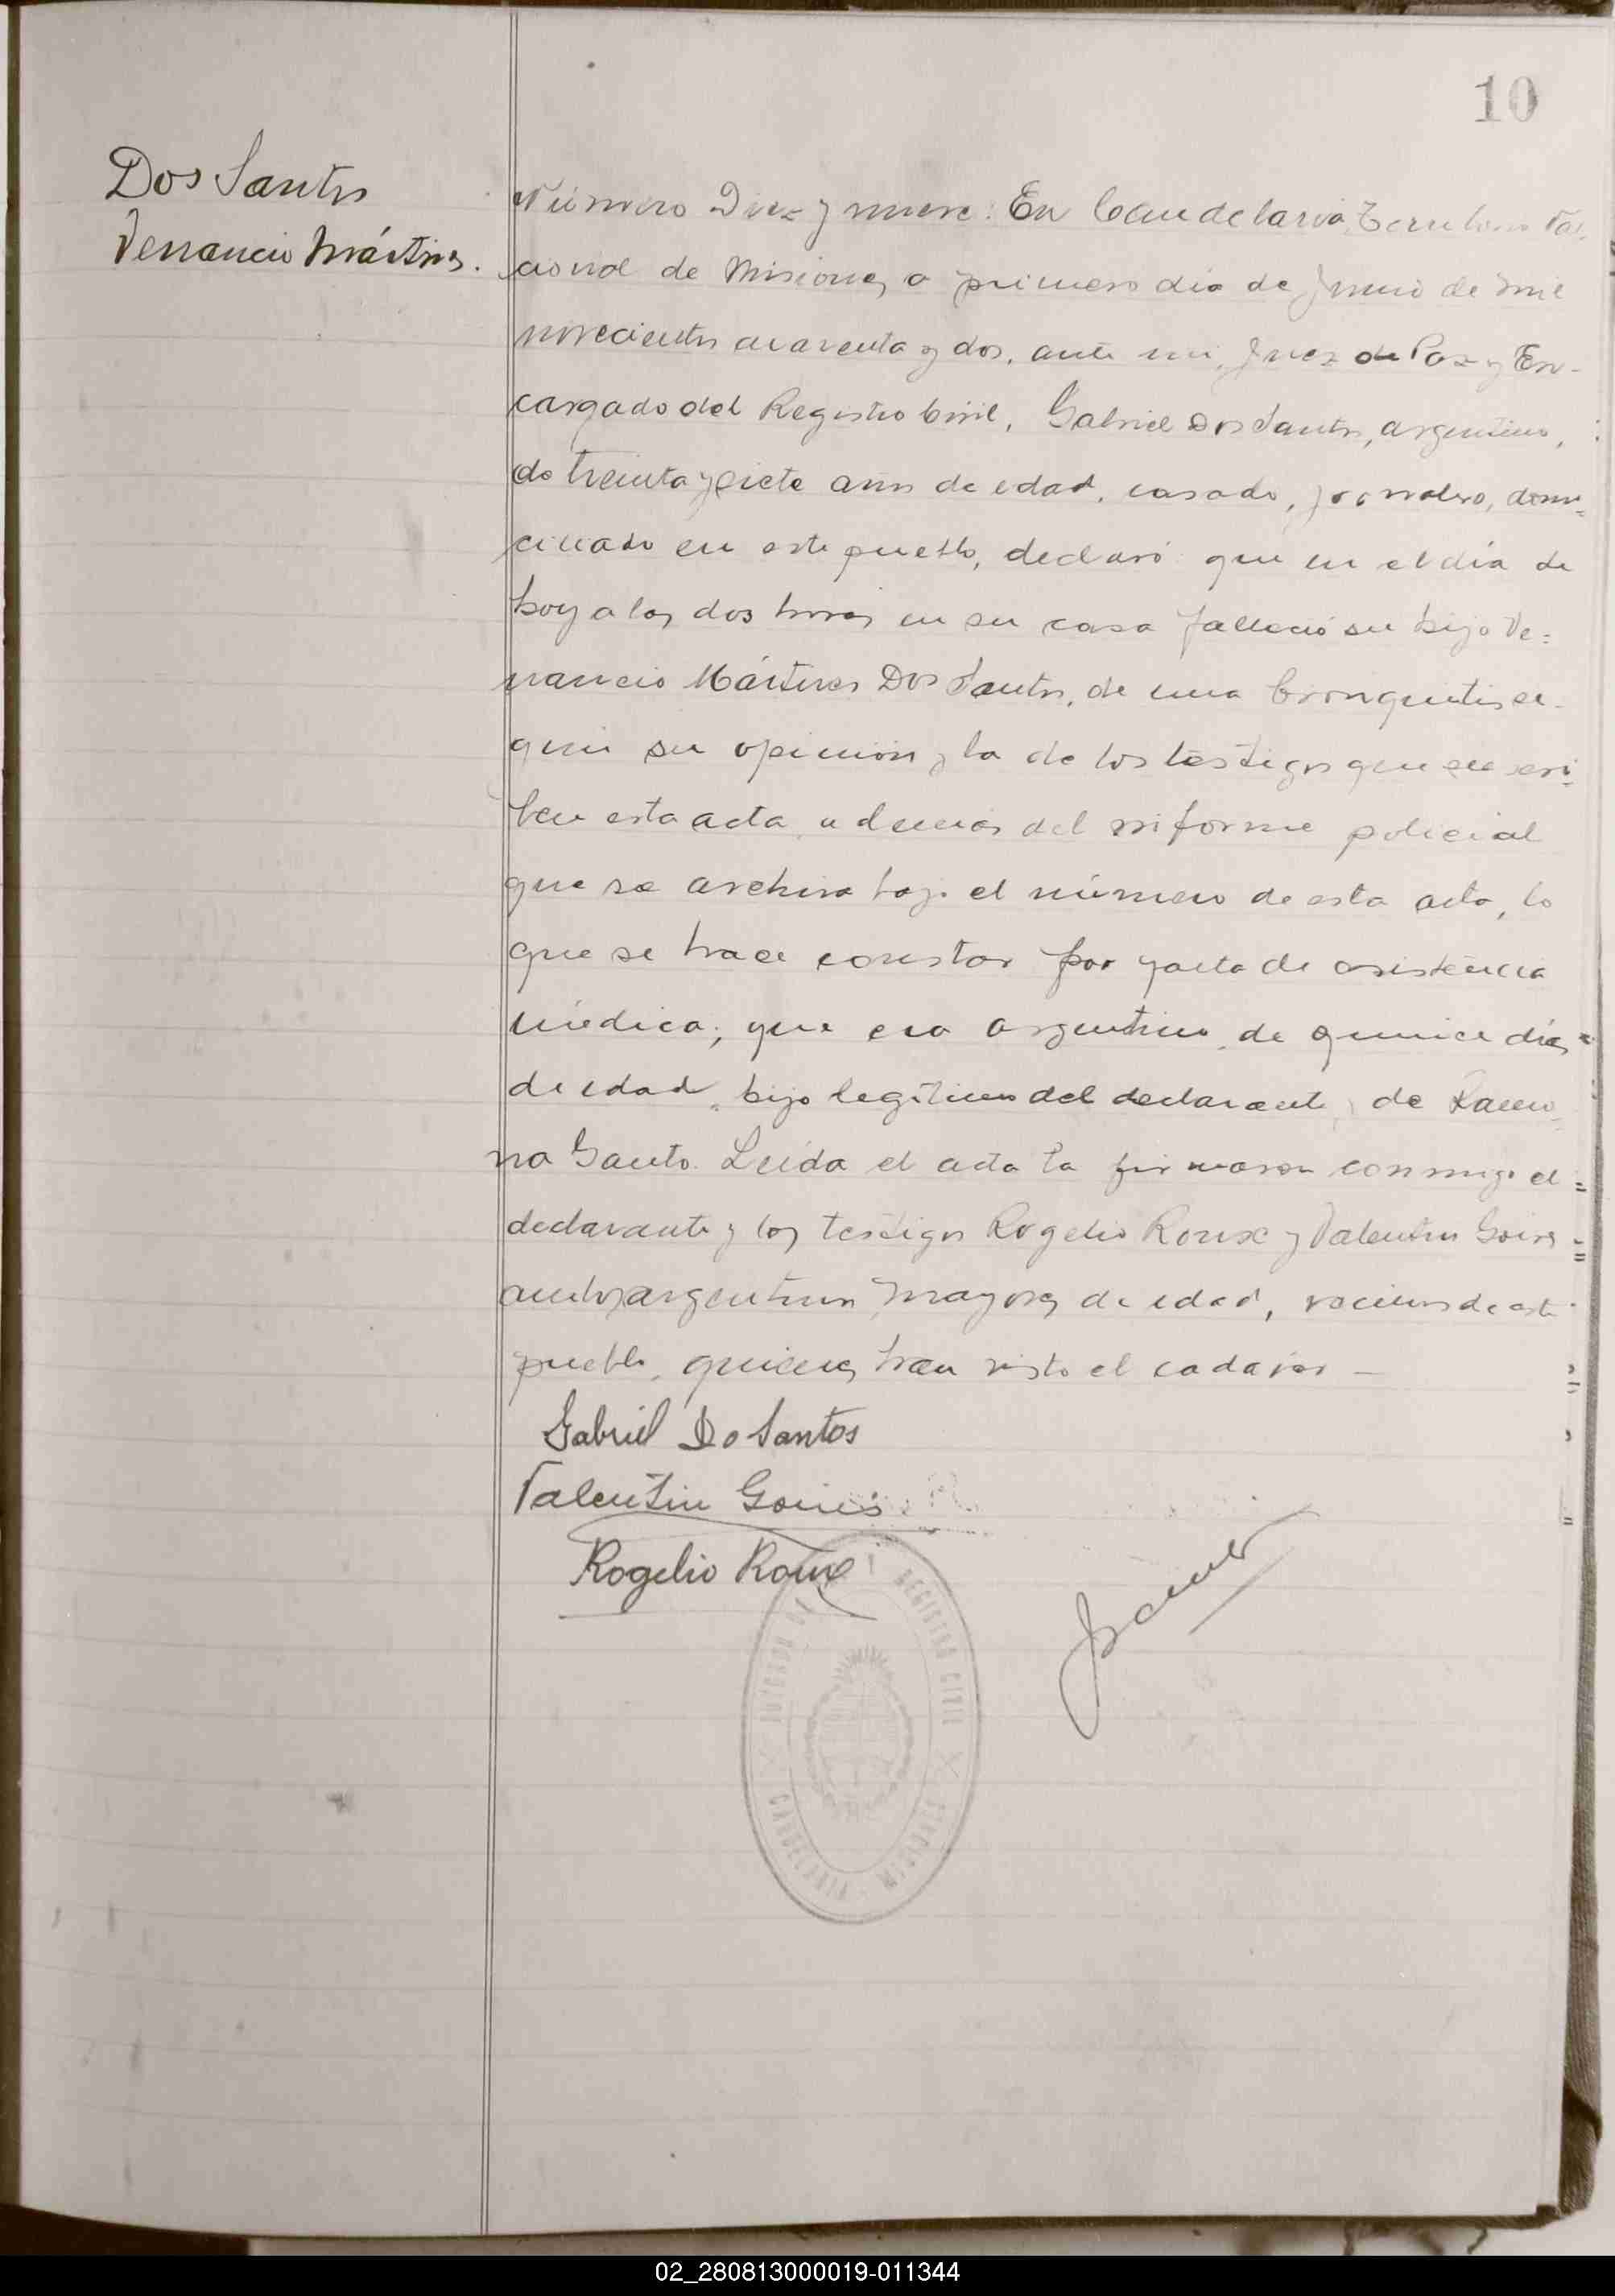 10
Dos Santos
Venancio Mártires.
Número Diez y nueve: En Candelaria, Territorio Na-
cional de Misiones, a primero día de Junio de mil
novecientos cuarenta y dos, ante mi, Juez de Paz y En-
cargado del Registro Civil, Gabriel Dos Santos, argentino,
de treinta y siete años de edad, casado, jornalero, domi=
ciliado en este pueblo, declaró que en el día de
hoy a las dos horas en su casa falleció su hijo Ve=
nancio Mártires Dos Santos, de una bronquitis se-
gún su opinión y la de los testigos que suscri=
ben esta acta, además del informe policial
que se archiva bajo el número de esta acta, lo
que se hace constar por falta de asistencia
médica; que era argentino, de quince días
de edad, hijo legítimo del declarante y de Ramo
na Gauto. Leída el acta la firmaron conmigo el
declarante y los testigos Rogelio Roux y Valentin
ambos argentinos, mayores de edad, vecinos de este
pueblo, quienes han visto el cadáver —
Gabriel Do Santos
Valentin
Rogelio Roux
JUZGADO DE REGISTRO CIVIL
CANDELARIA MISIONES
02_280813000019-011344